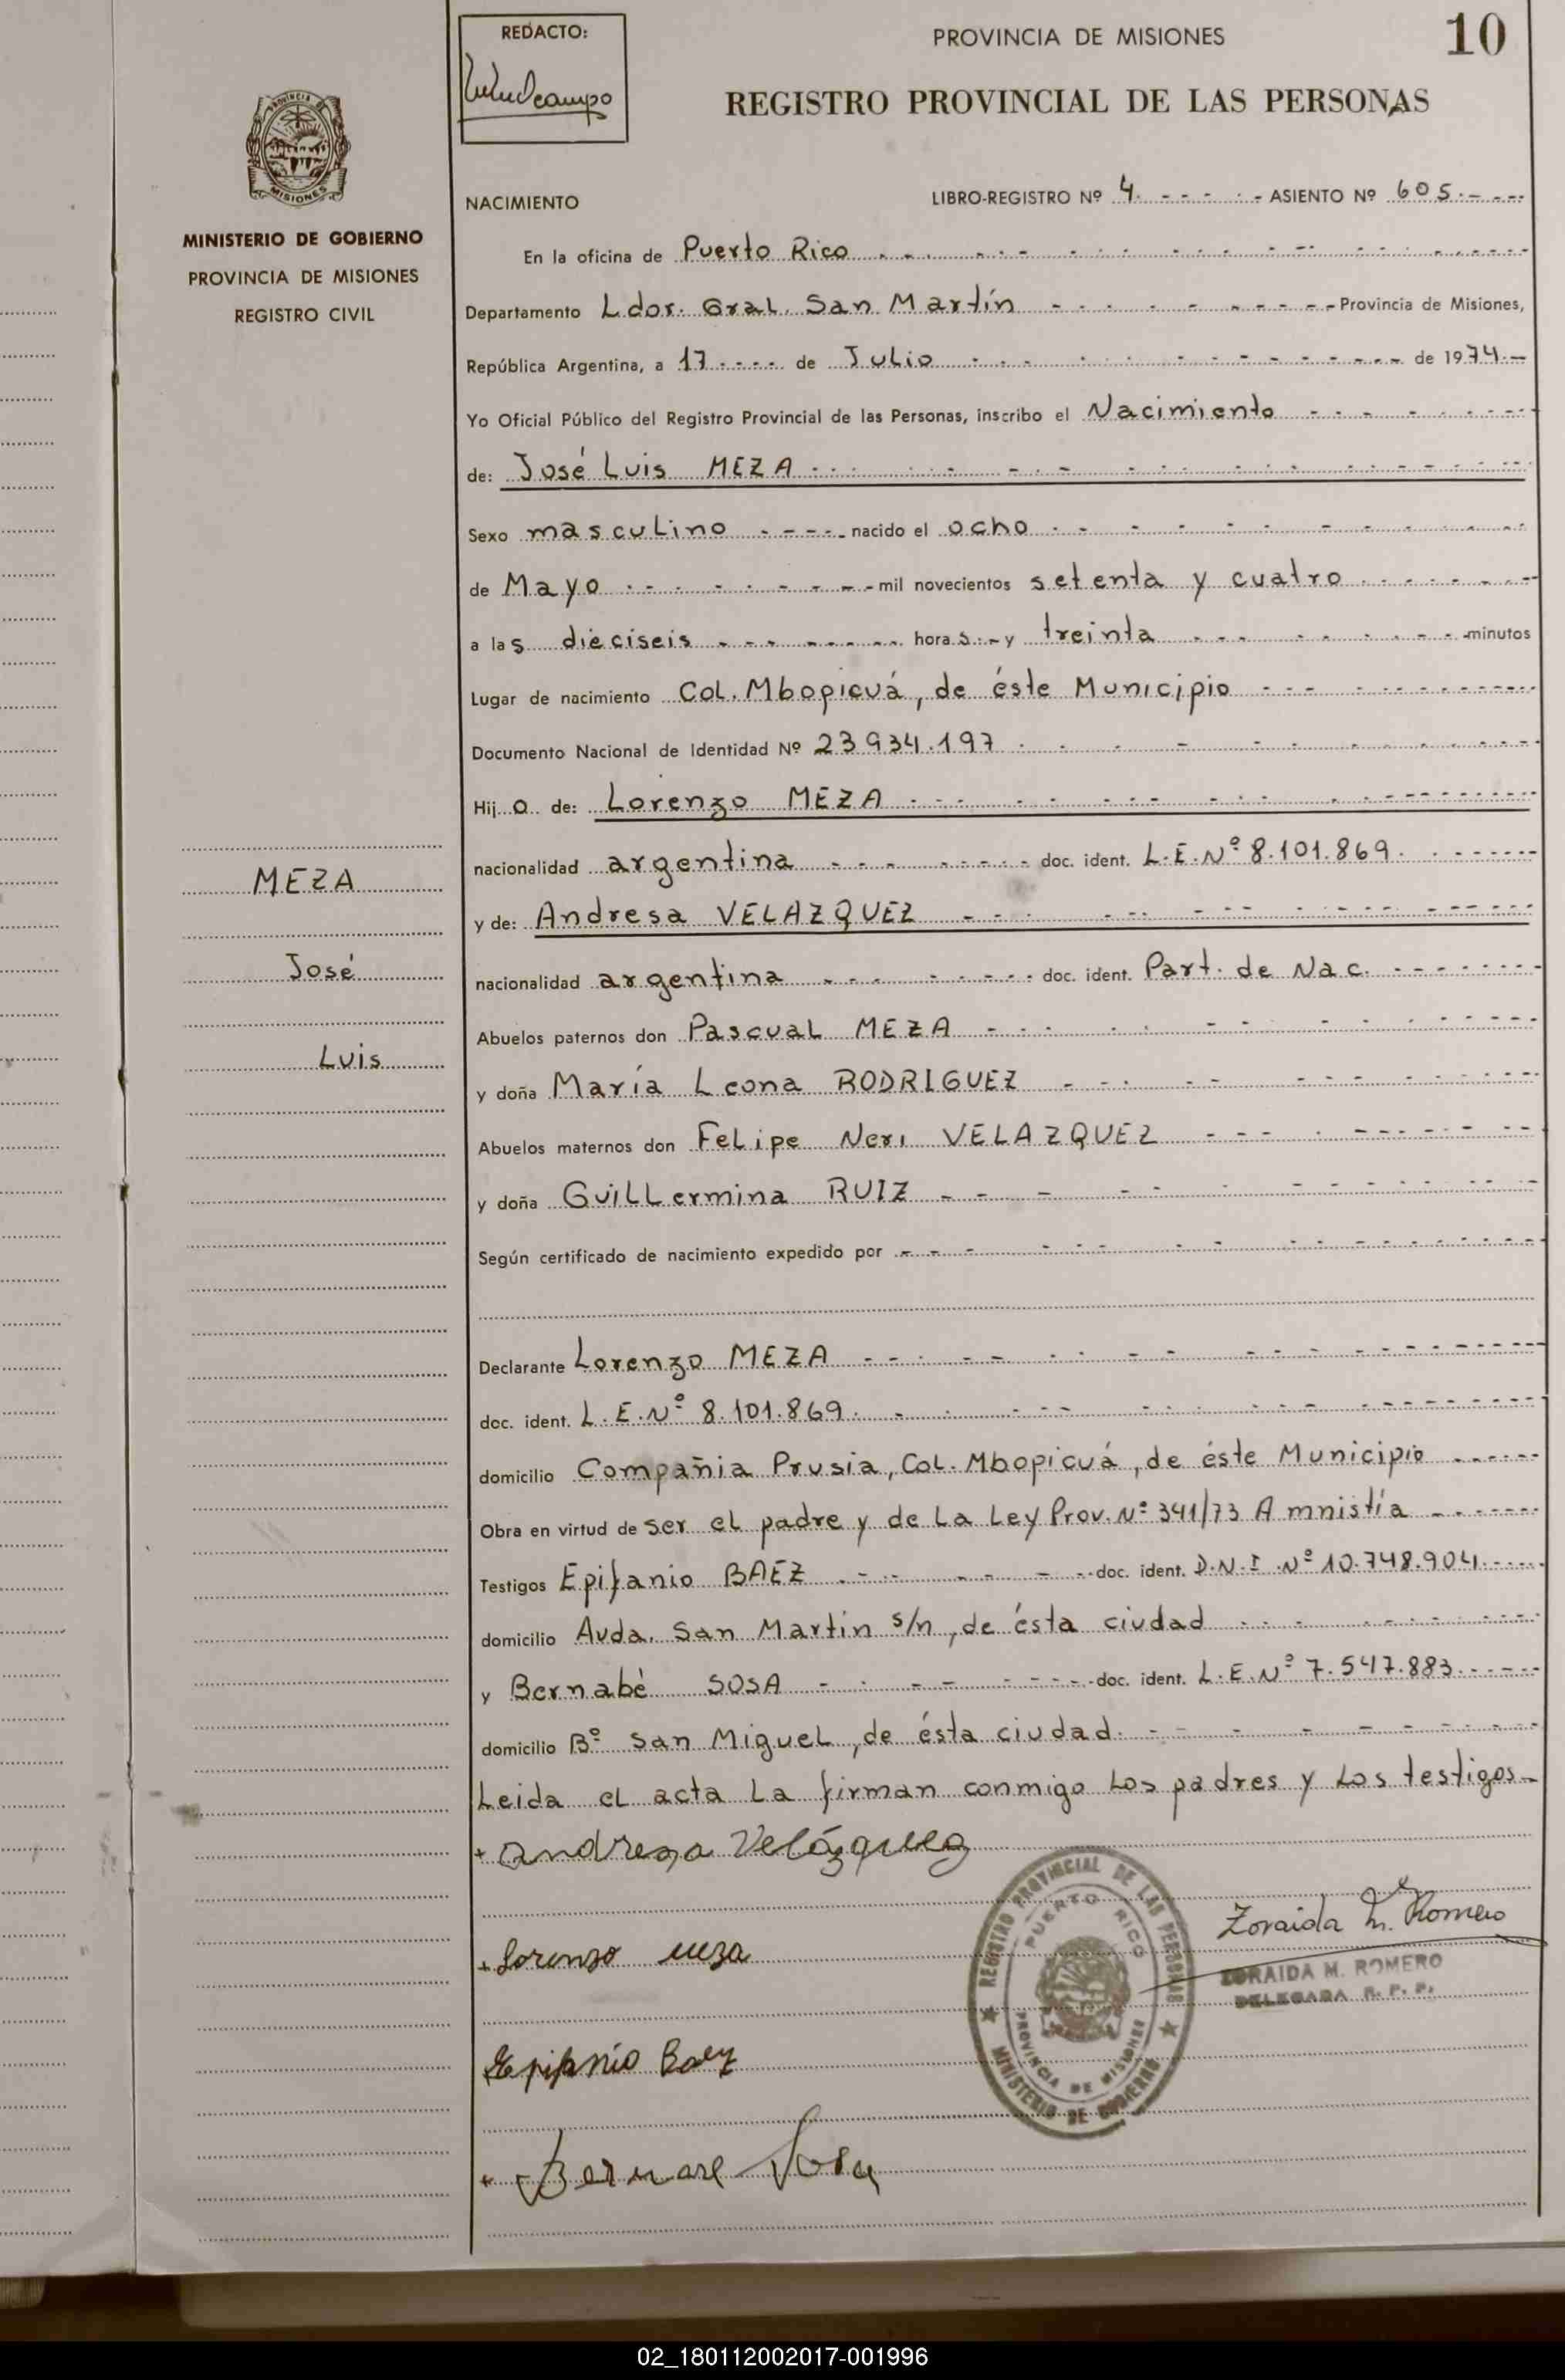 REDACTO:
PROVINCIA DE MISIONES
10
REGISTRO PROVINCIAL DE LAS PERSONAS
PROVINCIA DE
MISIONES
MINISTERIO DE GOBIERNO
PROVINCIA DE MISIONES
REGISTRO CIVIL
NACIMIENTO
LIBRO-REGISTRO Nº 4. ASIENTO Nº 605.
En la oficina de Puerto Rico
Departamento Ldor. Gral. San Martín Provincia de Misiones,
República Argentina, a 17 de Julio de 1974.
Yo Oficial Público del Registro Provincial de las Personas, inscribo el Nacimiento
de: José Luis MEZA
Sexo masculino nacido el ocho
de Mayo mil novecientos setenta y cuatro
a las dieciseis horas y treinta minutos
Lugar de nacimiento Col. Mbopicuá, de éste Municipio
Documento Nacional de Identidad Nº 23934.197
Hijo de: Lorenzo MEZA
nacionalidad argentina doc. ident. L.E.Nº 8.101.869.
y de: Andresa VELAZQUEZ
nacionalidad argentina doc. ident. Part. de Nac.
Abuelos paternos don Pascual MEZA
y doña María Leona RODRIGUEZ
Abuelos maternos don Felipe Neri VELAZQUEZ
y doña Guillermina RUIZ
Según certificado de nacimiento expedido por
Declarante Lorenzo MEZA
doc. ident. L.E.Nº 8.101.869.
domicilio Compañia Prusia, Col. Mbopicuá, de éste Municipio
Obra en virtud de ser el padre y de la Ley Prov. Nº 341/73 Amnistía
Testigos Epifanio BAEZ doc. ident. D.N.I. Nº 10.748.904.
domicilio Avda. San Martín s/n, de ésta ciudad
y Bernabé SOSA doc. ident. L.E.Nº 7.547.883.
domicilio Bº San Miguel, de ésta ciudad.
Leida el acta la firman conmigo los padres y los testigos.
MEZA
José
Luis
+ Andresa Velázquez
+ Lorenzo meza
Epifanio Baez
+ Sosa
REGISTRO PROVINCIAL DE LAS PERSONAS
PUERTO RICO
PROVINCIA DE MISIONES
MINISTERIO DE GOBIERNO
Zoraida M. Romero
ZORAIDA M. ROMERO
DELEGADA R. P. P.
02_180112002017-001996